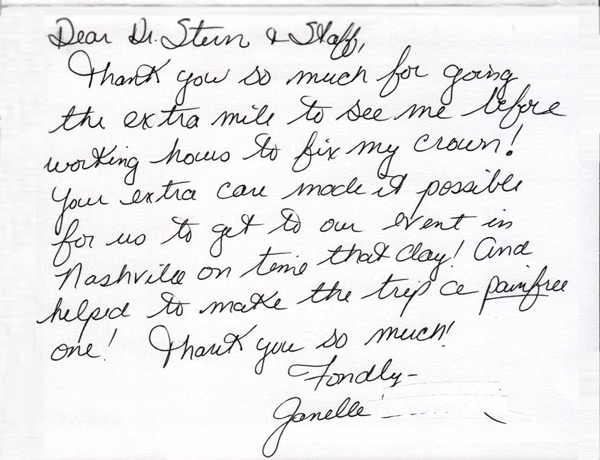 Dear Dr. Stern & Staff,
Thank you so much for going
the extra mile to see me before
working hours to fix my crown!
Your extra care made it possible
for us to get to our event in
Nashville on time that day! And
helped to make the trip a painfree
one! Thank you so much!
Fondly-
Janelle